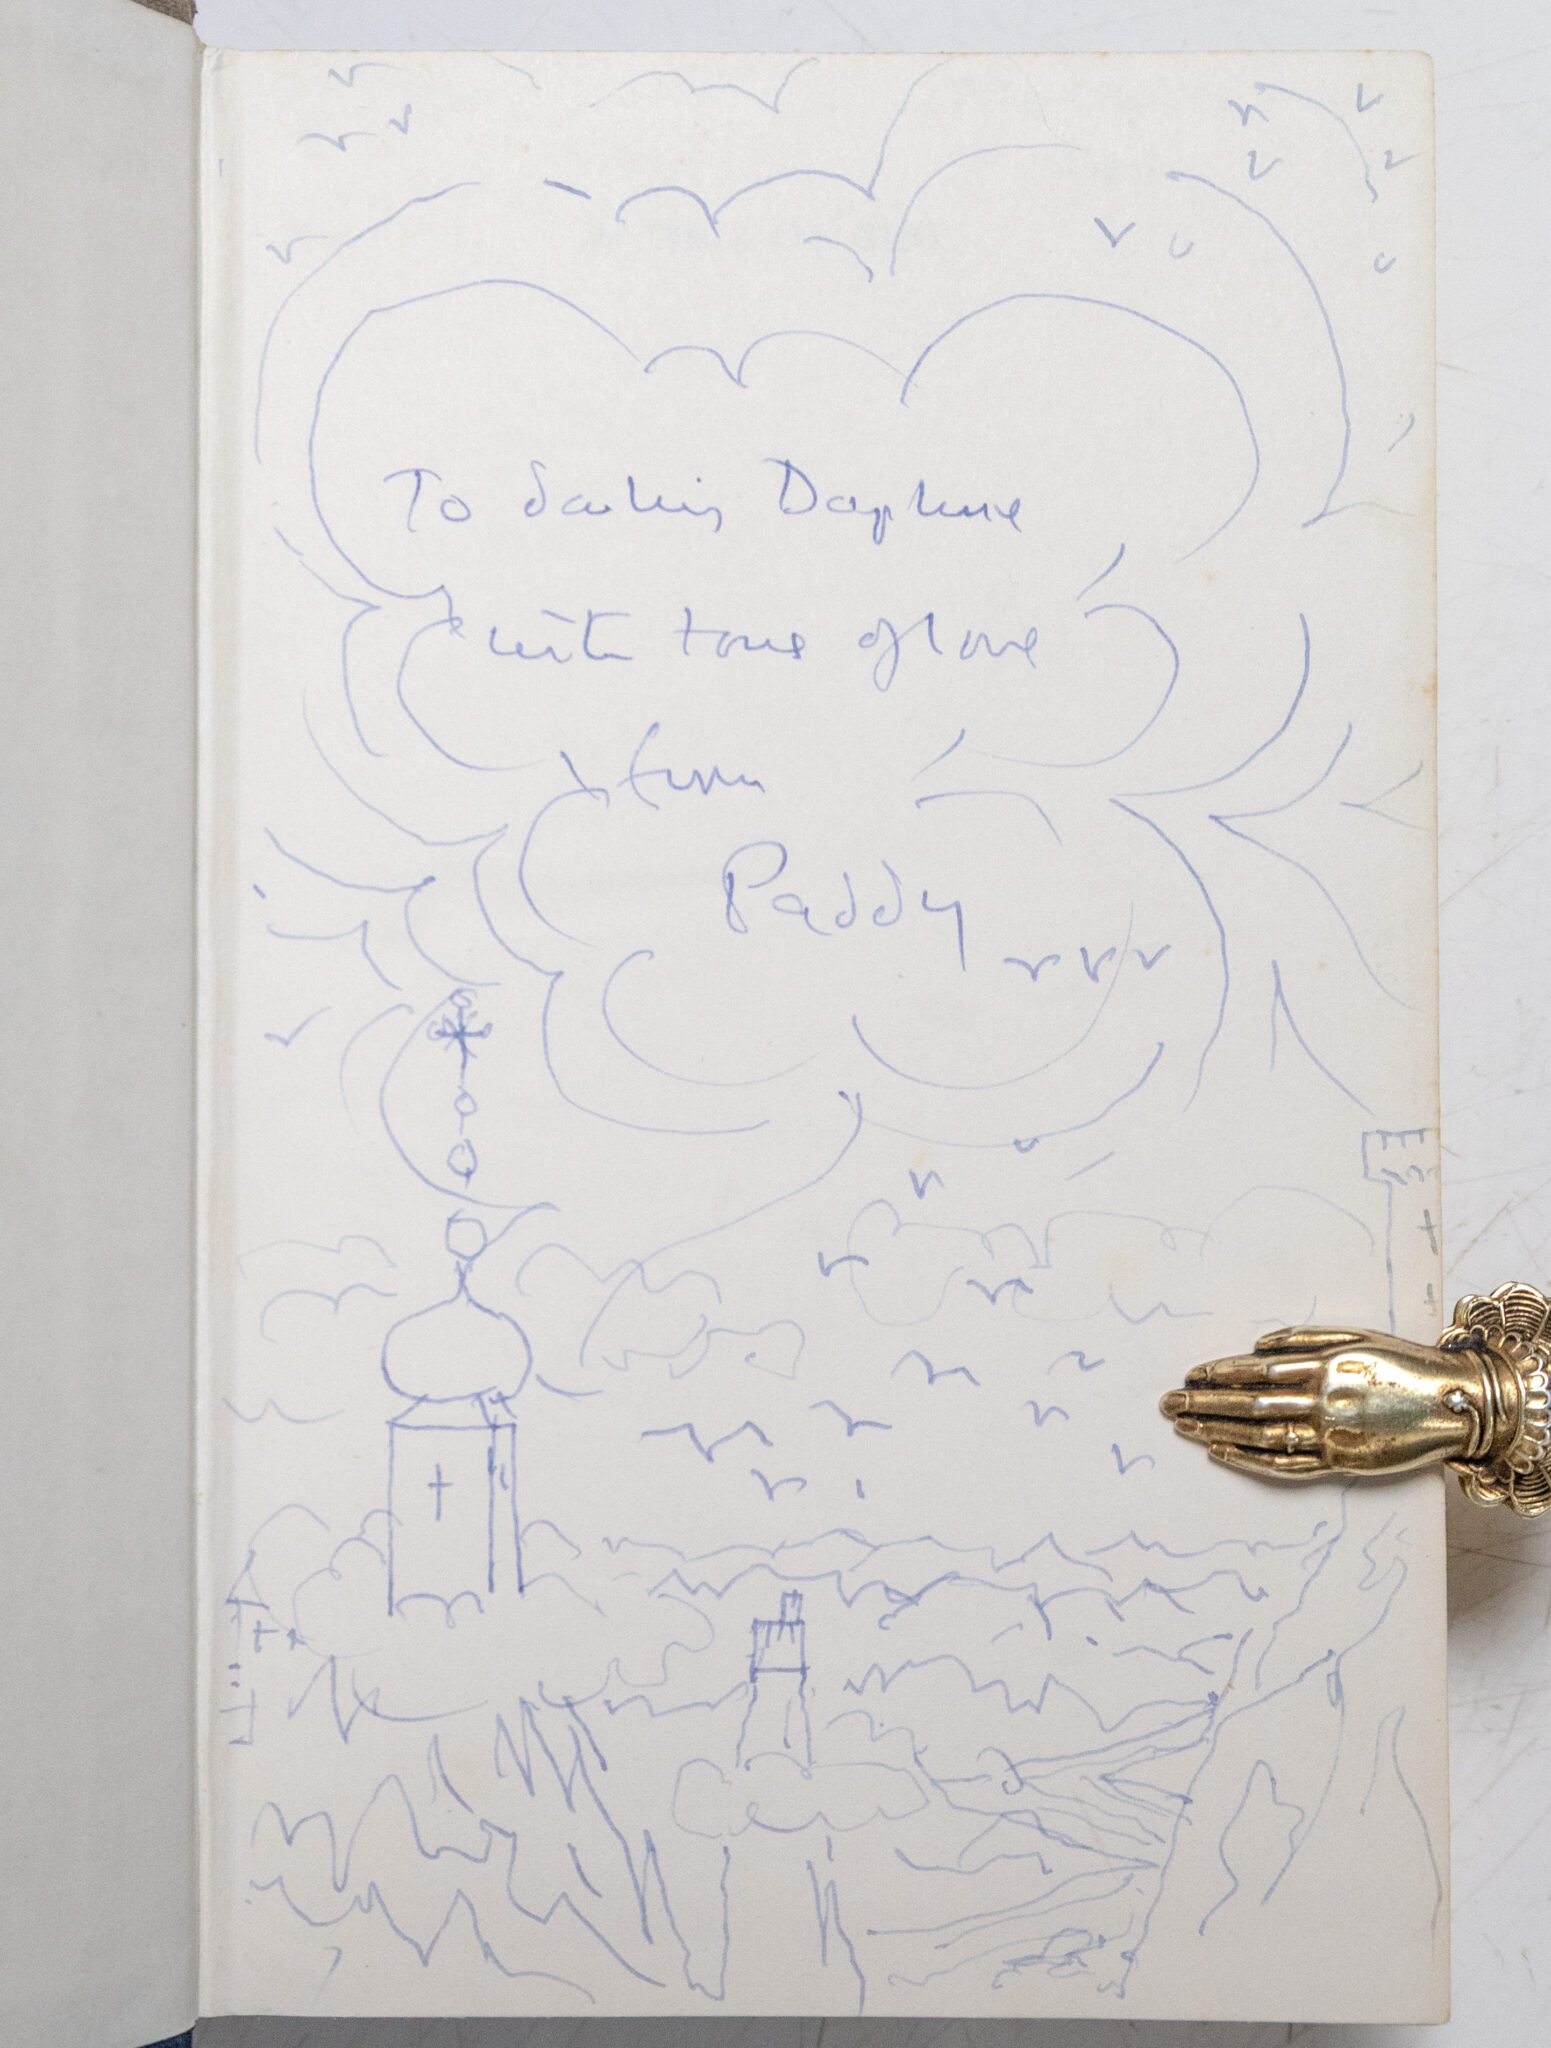 To darling Daphne
with tons of love
from
Paddy